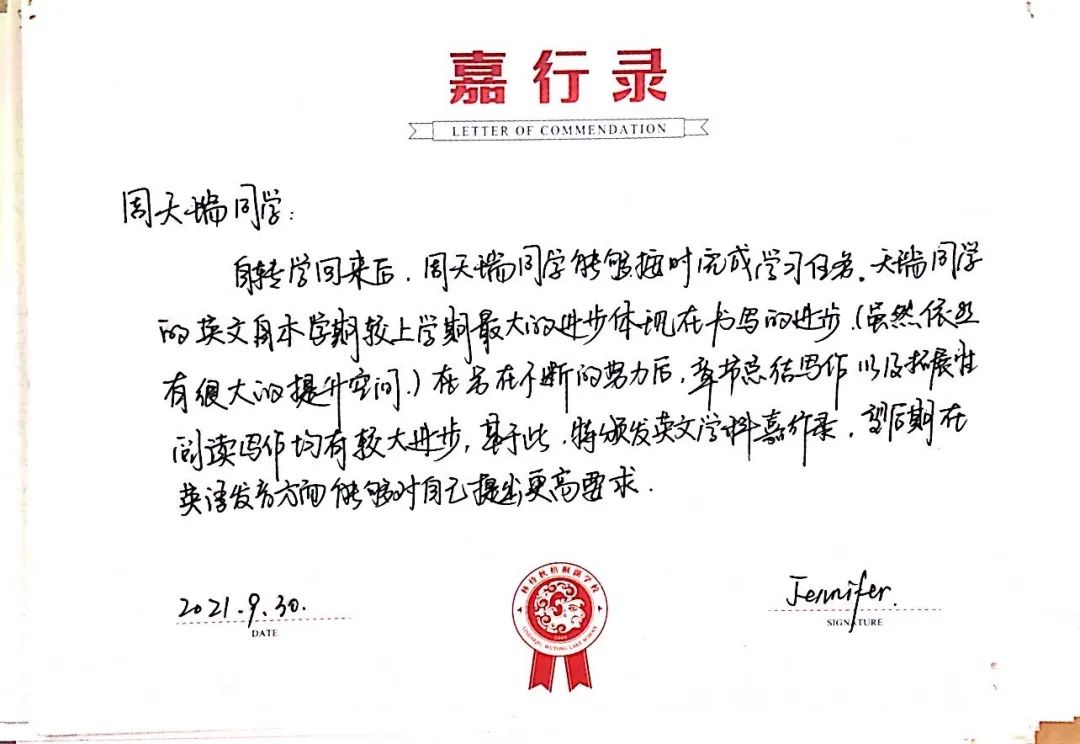 嘉行录
LETTER OF COMMENDATION
周天瑞同学:
自转学回来后,周天瑞同学能够按时完成学习任务。天瑞同学
的英文自本学期较上学期最大的进步体现在书写的进步.(虽然依然
有很大的提升空间.)在 在不断的努力后,章节总结写作以及拓展性
阅读写作均有较大进步,基于此,特颁发英文学科嘉行录,望后期在
英语发音方面能够对自己提出更高要求.
2021.9.30.
DATE
林荫秋梧桐湖学校
WUTONG LAKE SCHOOL
Jennifer.
SIGNATURE